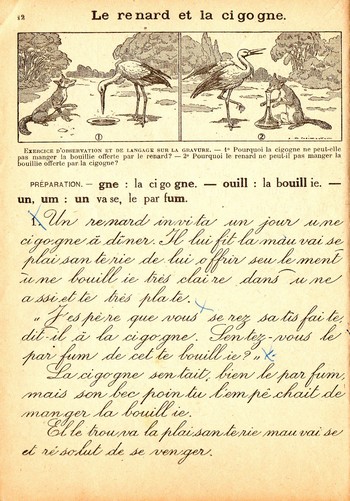 12
Le renard et la ci go gne.
① ②
EXERCICE D'OBSERVATION ET DE LANGAGE SUR LA GRAVURE. — 1° Pourquoi la cigogne ne peut-elle
pas manger la bouillie offerte par le renard? — 2° Pourquoi le renard ne peut-il pas manger la
bouillie offerte par la cigogne?
PRÉPARATION. — gne : la ci go gne. — ouill : la bouill ie. —
un, um : un va se, le par fum.
1. Un renard in vi ta un jour u ne
ci go gne à dî ner. Il lui fit la mau vai se
plai san te rie de lui o ffrir seu le ment
u ne bouill ie très claire dans u ne
a ssi et te très pla te.
« J'es pè re que vous se rez sa tis fai te,
dit-il à la ci go gne. Sen tez-vous le
par fum de cet te bouill ie? »
La ci go gne sen tait bien le par fum,
mais son bec poin tu l'em pê chait de
man ger la bouill ie.
El le trou va la plai san te rie mau vai se
et ré so lut de se ven ger.